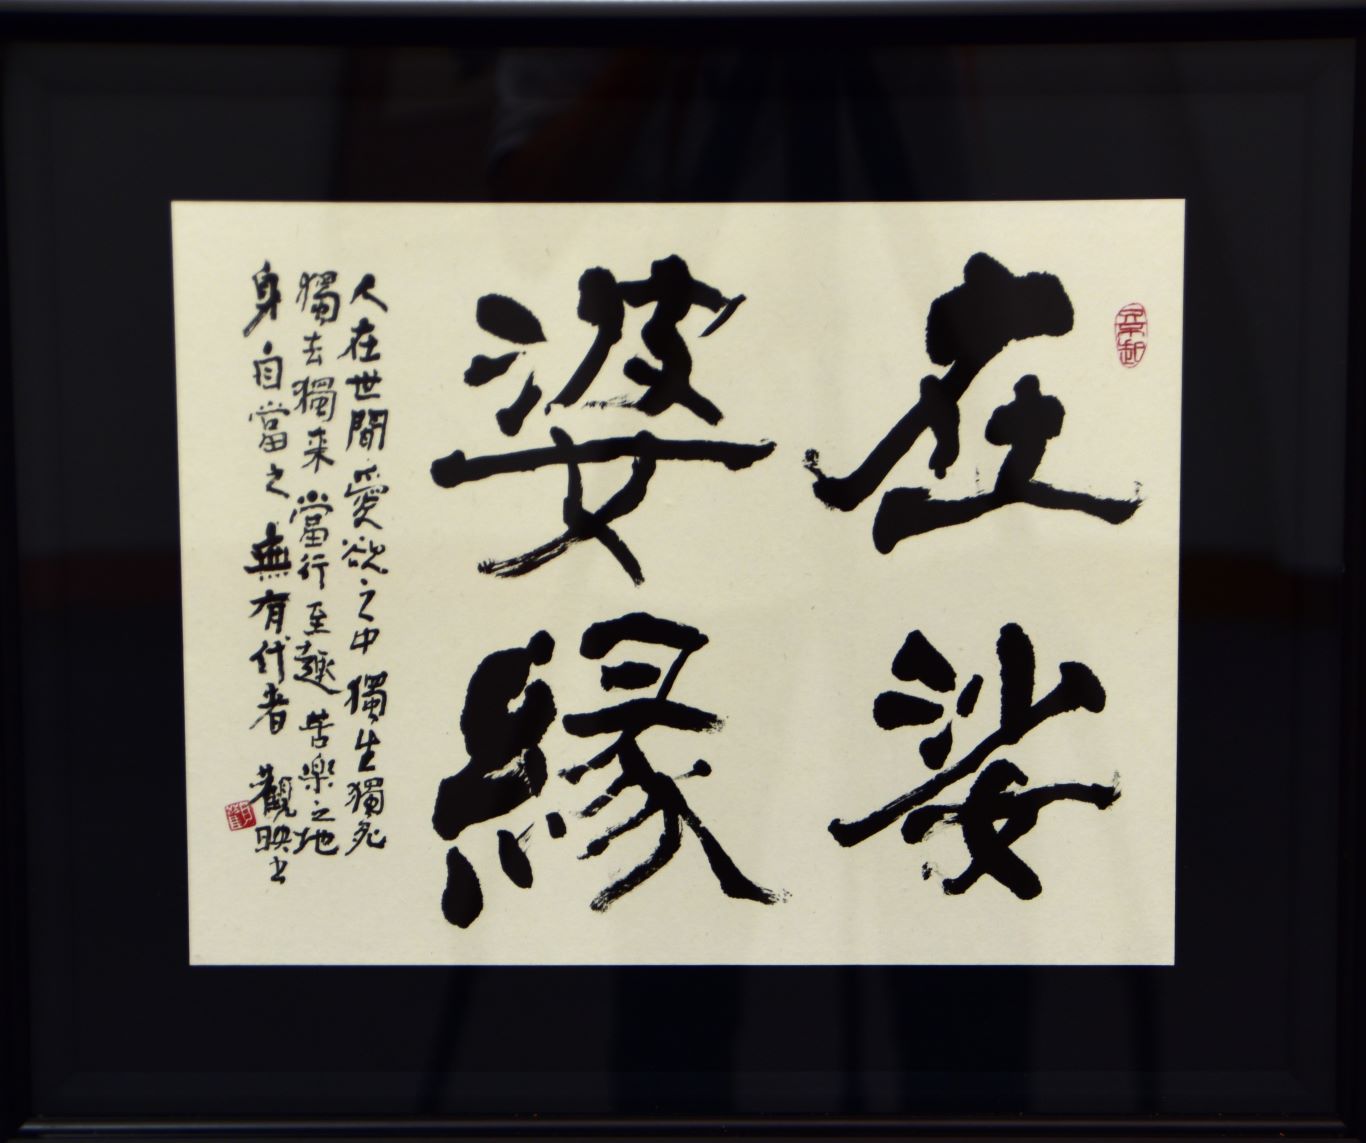 在娑
婆緣
人在世間愛欲之中獨生獨死
獨去獨来當行至趣苦樂之地
身自當之無有代者 觀映书